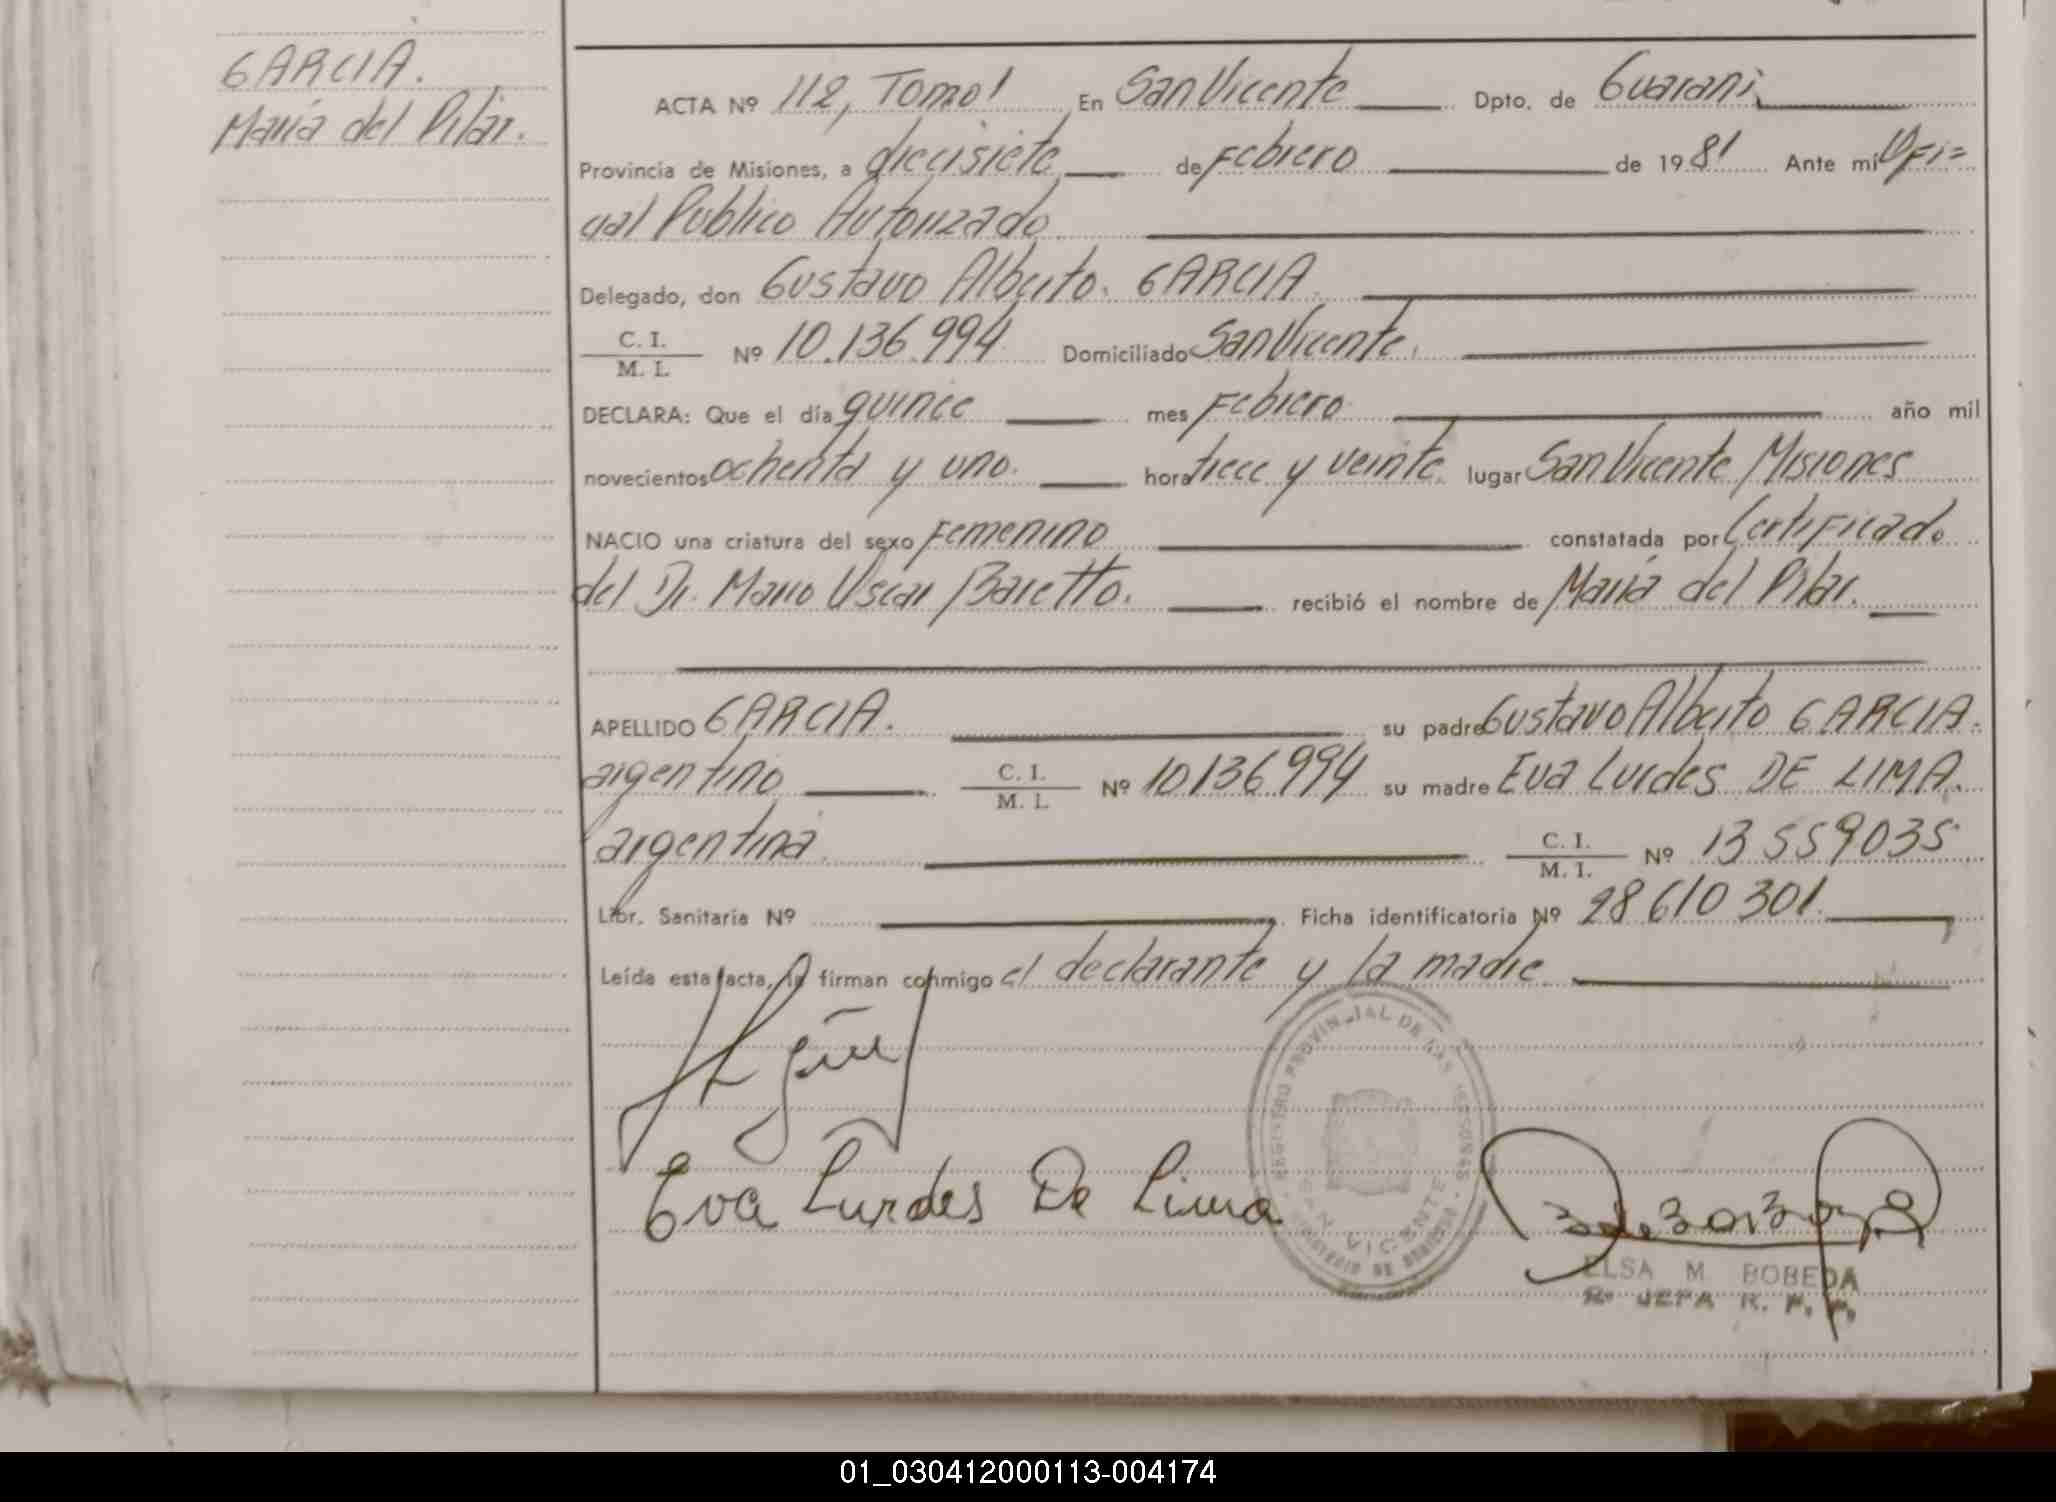 GARCIA.
María del Pilar.
ACTA Nº 112, Tomo I En San Vicente Dpto. de Guaraní,
Provincia de Misiones, a diecisiete de Febrero de 1981 Ante mí Ofi=
cial Publico Autorizado
Delegado, don Gustavo Alberto. GARCIA.
C. I.
M. I. Nº 10.136.994 Domiciliado San Vicente,
DECLARA: Que el día quince mes Febrero año mil
novecientos ochenta y uno. hora trece y veinte. lugar San Vicente Misiones
NACIO una criatura del sexo Femenino constatada por Certificado
del Dr. Mario Oscar Baretto. recibió el nombre de María del Pilar.
APELLIDO GARCIA. su padre Gustavo Alberto GARCIA.
argentino C. I.
M. I. Nº 10.136.994 su madre Eva Lurdes DE LIMA.
argentina. C. I.
M. I. Nº 13 559035
Libr. Sanitaria Nº Ficha identificatoria Nº 28 610 301.
Leída esta acta, la firman conmigo el declarante y la madre.
Eva Lurdes De Lima
REGISTRO PROVINCIAL DE LAS PERSONAS
SAN VICENTE
MINISTERIO DE GOBIERNO
ELSA M. BOBEDA
JEFA R. P. P.
01_030412000113-004174